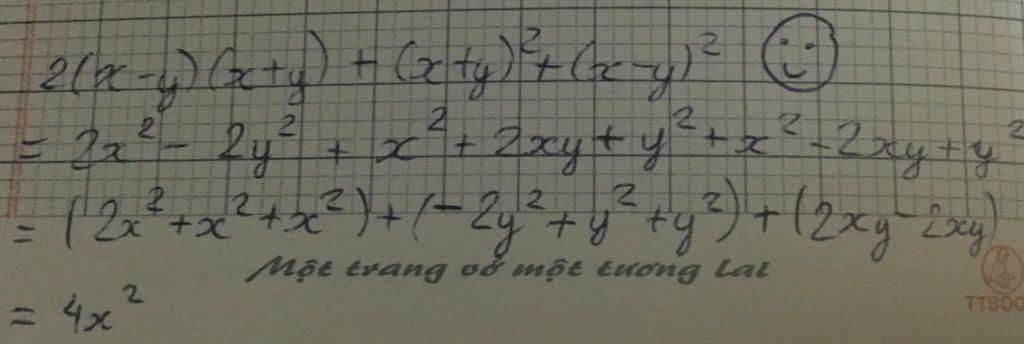 2(x-y)(x+y) + (x+y)² + (x-y)²
= 2x² - 2y² + x² + 2xy + y² + x² - 2xy + y²
= (2x² + x² + x²) + (-2y² + y² + y²) + (2xy - 2xy)
Một trang vở một tương lai
= 4x²